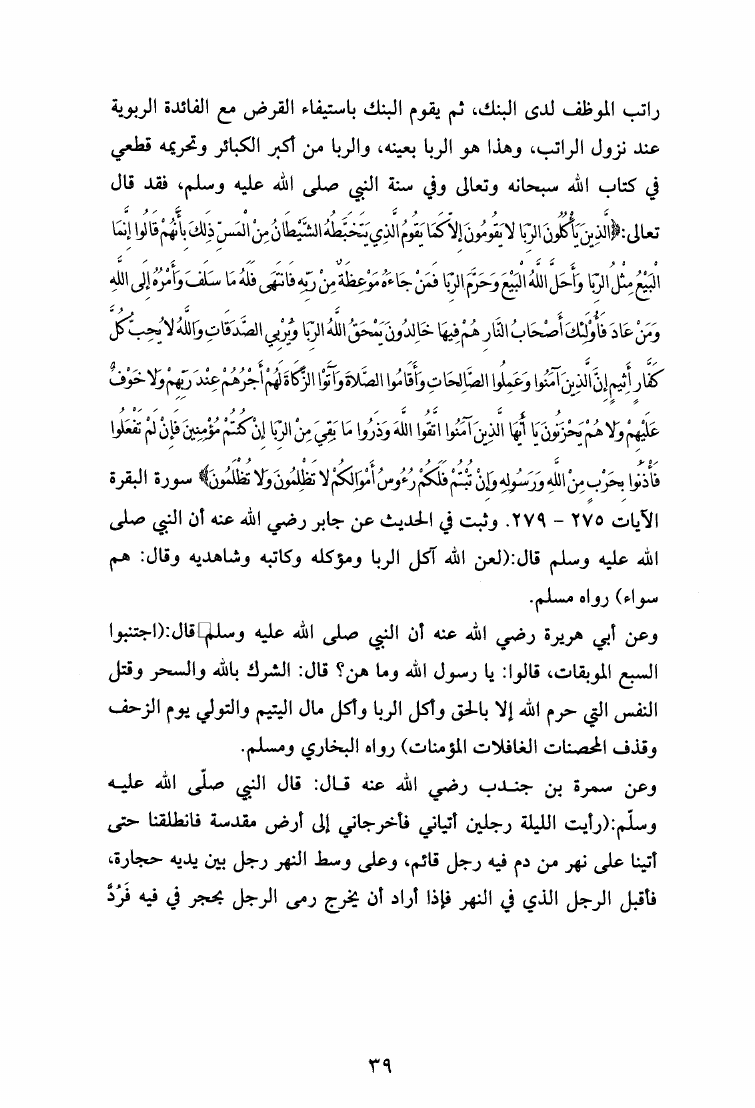 راتب الموظف لدى البنك، ثم يقوم البنك باستيفاء القرض مع الفائدة الربوية
عند نزول الراتب، وهذا هو الربا بعينه، والربا من أكبر الكبائر وتحريمه قطعي
في كتاب الله سبحانه وتعالى وفي سنة النبي صلى الله عليه وسلم، فقد قال
تعالى:﴿الَّذِينَ يَأْكُلُونَ الرِّبَا لا يَقُومُونَ إِلاَّ كَمَا يَقُومُ الَّذِي يَتَخَبَّطُهُ الشَّيْطَانُ مِنْ الْمَسِّ ذَلِكَ بِأَنَّهُمْ قَالُوا إِنَّمَا
الْبَيْعُ مِثْلُ الرِّبَا وَأَحَلَّ اللَّهُ الْبَيْعَ وَحَرَّمَ الرِّبَا فَمَنْ جَاءَهُ مَوْعِظَةٌ مِنْ رَبِّهِ فَانْتَهَى فَلَهُ مَا سَلَفَ وَأَمْرُهُ إِلَى اللَّهِ
وَمَنْ عَادَ فَأُوْلَئِكَ أَصْحَابُ النَّارِ هُمْ فِيهَا خَالِدُونَ يَمْحَقُ اللَّهُ الرِّبَا وَيُرْبِي الصَّدَقَاتِ وَاللَّهُ لا يُحِبُّ كُلَّ
كَفَّارٍ أَثِيمٍ إِنَّ الَّذِينَ آمَنُوا وَعَمِلُوا الصَّالِحَاتِ وَأَقَامُوا الصَّلاةَ وَآتَوْا الزَّكَاةَ لَهُمْ أَجْرُهُمْ عِنْدَ رَبِّهِمْ وَلا خَوْفٌ
عَلَيْهِمْ وَلا هُمْ يَحْزَنُونَ يَا أَيُّهَا الَّذِينَ آمَنُوا اتَّقُوا اللَّهَ وَذَرُوا مَا بَقِيَ مِنْ الرِّبَا إِنْ كُنتُمْ مُؤْمِنِينَ فَإِنْ لَمْ تَفْعَلُوا
فَأْذَنُوا بِحَرْبٍ مِنْ اللَّهِ وَرَسُولِهِ وَإِنْ تُبْتُمْ فَلَكُمْ رُءُوسُ أَمْوَالِكُمْ لا تَظْلِمُونَ وَلا تُظْلَمُونَ﴾ سورة البقرة
الآيات ٢٧٥ - ٢٧٩. وثبت في الحديث عن جابر رضي الله عنه أن النبي صلى
الله عليه وسلم قال:(لعن الله آكل الربا ومؤكله وكاتبه وشاهديه وقال: هم
سواء) رواه مسلم.
وعن أبي هريرة رضي الله عنه أن النبي صلى الله عليه وسلم قال:(اجتنبوا
السبع الموبقات، قالوا: يا رسول الله وما هن؟ قال: الشرك بالله والسحر وقتل
النفس التي حرم الله إلا بالحق وأكل الربا وأكل مال اليتيم والتولي يوم الزحف
وقذف المحصنات الغافلات المؤمنات) رواه البخاري ومسلم.
وعن سمرة بن جندب رضي الله عنه قال: قال النبي صلّى الله عليه
وسلّم:(رأيت الليلة رجلين أتياني فأخرجاني إلى أرض مقدسة فانطلقنا حتى
أتينا على نهر من دم فيه رجل قائم، وعلى وسط النهر رجل بين يديه حجارة،
فأقبل الرجل الذي في النهر فإذا أراد أن يخرج رمى الرجل بحجر في فيه فَرُدَّ
٣٩